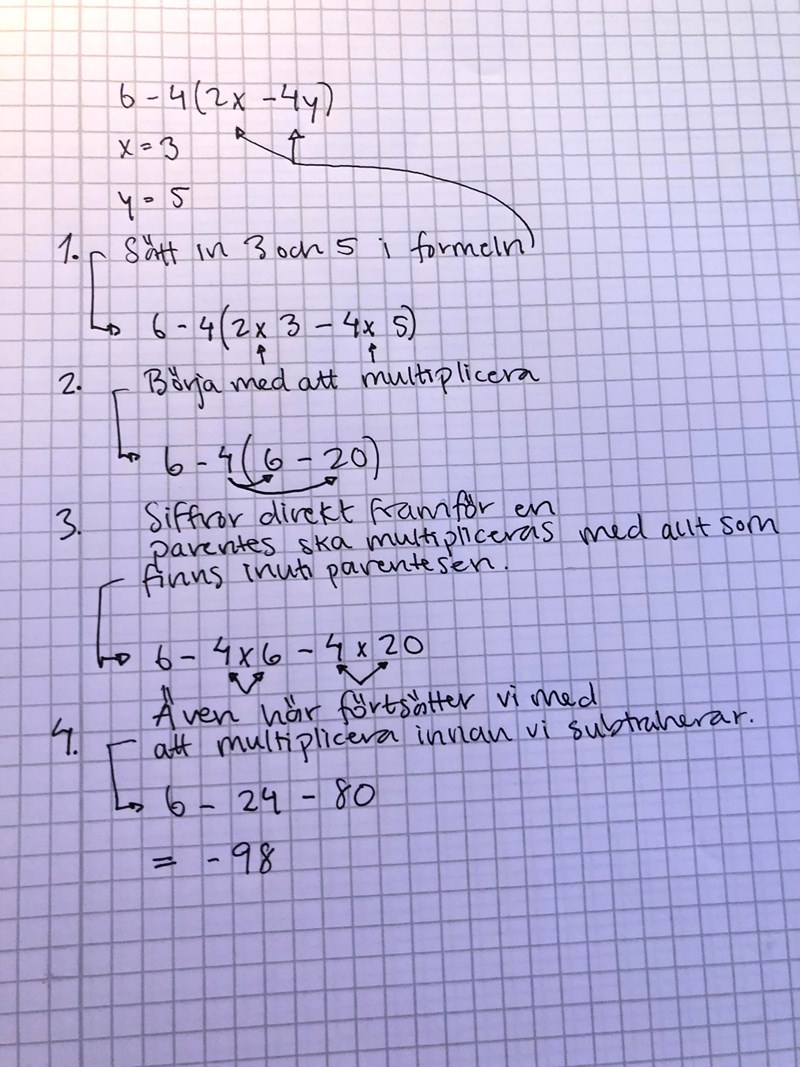 6 - 4(2x - 4y)
x = 3
y = 5
1. Sätt in 3 och 5 i formeln
6 - 4(2 x 3 - 4 x 5)
2. Börja med att multiplicera
6 - 4(6 - 20)
3. Siffror direkt framför en
parentes ska multipliceras med allt som
finns inuti parentesen.
6 - 4 x 6 - 4 x 20
Även här förtsätter vi med
4. att multiplicera innan vi subtraherar.
6 - 24 - 80
= - 98